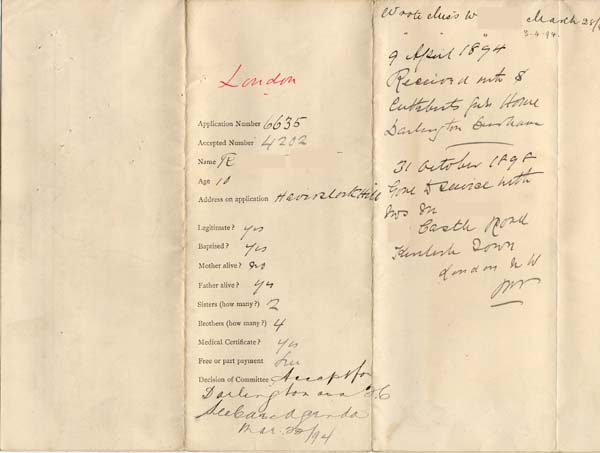 London
Application Number 6635
Accepted Number 4202
Name R
Age 10
Address on application Haverstock Hill
Legitimate? Yes
Baptised? Yes
Mother alive? No
Father alive? Yes
Sisters (how many?) 2
Brothers (how many?) 4
Medical Certificate? Yes
Free or part payment free
Decision of Committee Accept for
Darlington
See Case Agenda
Mar. 28/94
Wrote Miss W March 28/
" " " 3.4.94.
9 April 1894
Received into S
Cuthberts Girls Home
Darlington Durham
31 October 1898
Gone to service with
Mrs M
Castle Road
Kentish Town
London N W